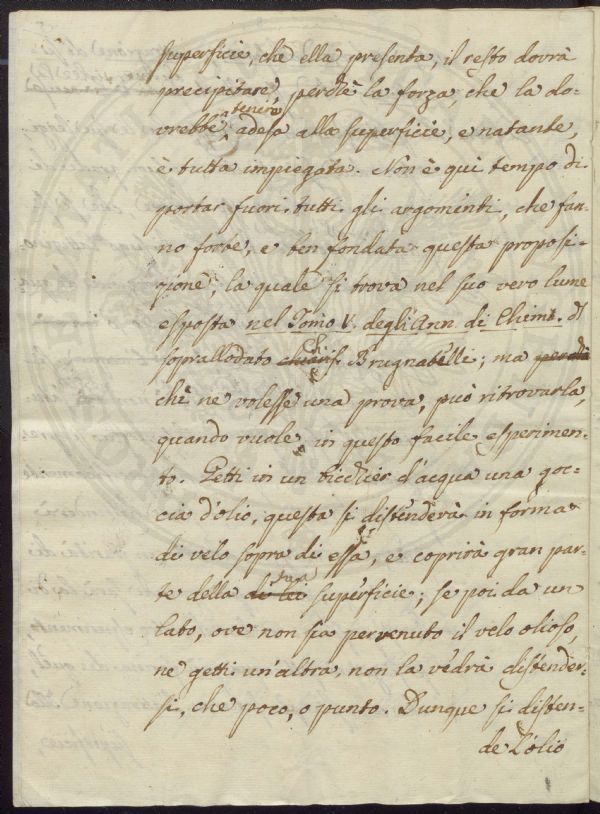 superficie, che ella presenta, il resto dovrà
precipitare, perchè la forza, che la do-
tenere
vrebbe adesa alla superficie, e natante,
è tutta impiegata. Non è qui tempo di
portar fuori tutti gli argomenti, che fan-
no forte, e ben fondata questa proposi-
zione, la quale si trova nel suo vero lume
esposta nel Tomo V. degli Ann. di Chim. di
soprallodato chiaris. Brugnatelli; ma perchè
chi ne volesse una prova, può ritrovarla,
quando vuole in questo facile esperimen-
to. Getti in un bicchier d'acqua una goc-
cia d'olio, questa si distenderà in forma
di velo sopra di essa, e coprirà gran par-
sua
te della di lei superficie; se poi da un
lato, ove non sia pervenuto il velo olioso,
ne getti un'altra, non la vedrà distender-
si, che poco, o punto. Dunque si disten-
de l'olio